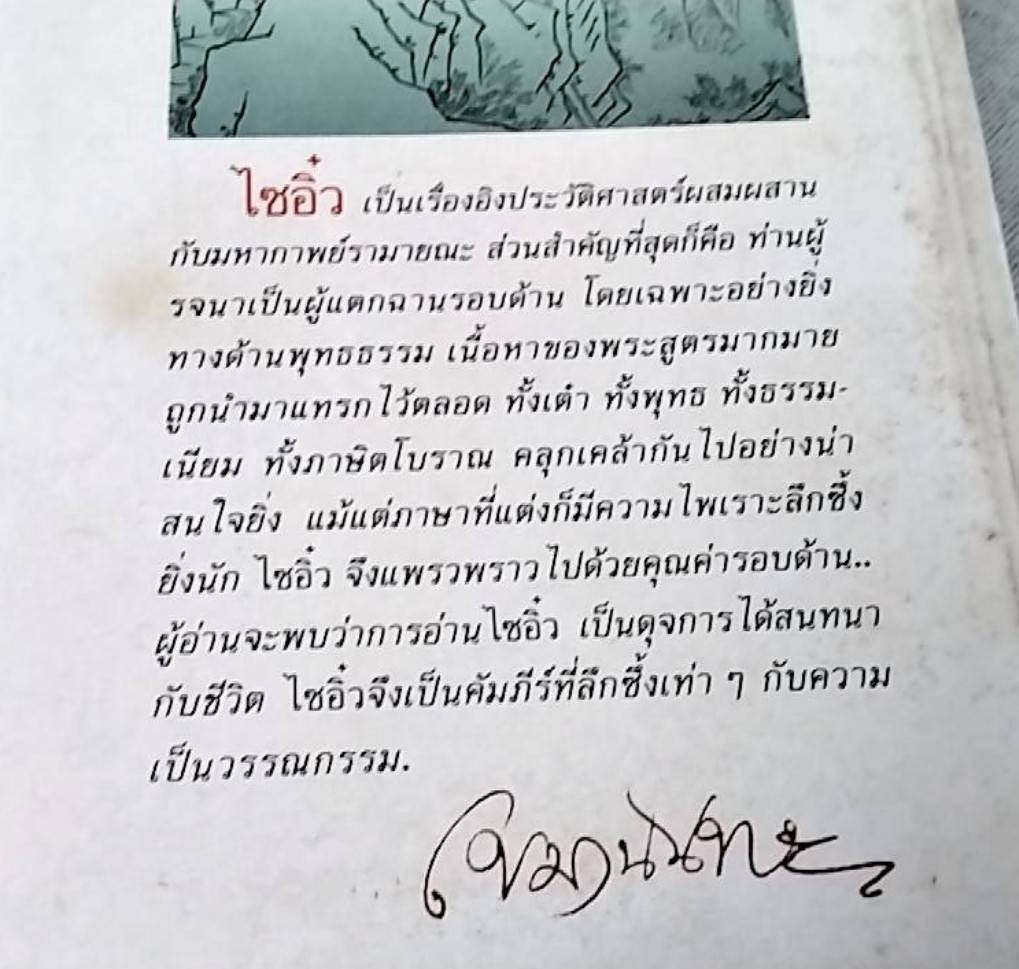 ไซอิ๋ว เป็นเรื่องอิงประวัติศาสตร์ผสมผสาน
กับมหากาพย์รามายณะ ส่วนสำคัญที่สุดก็คือ ท่านผู้
รจนาเป็นผู้แตกฉานรอบด้าน โดยเฉพาะอย่างยิ่ง
ทางด้านพุทธธรรม เนื้อหาของพระสูตรมากมาย
ถูกนำมาแทรกไว้ตลอด ทั้งเต๋า ทั้งพุทธ ทั้งธรรม-
เนียม ทั้งภาษิตโบราณ คลุกเคล้ากันไปอย่างน่า
สนใจยิ่ง แม้แต่ภาษาที่แต่งก็มีความไพเราะลึกซึ้ง
ยิ่งนัก ไซอิ๋ว จึงแพรวพราวไปด้วยคุณค่ารอบด้าน..
ผู้อ่านจะพบว่าการอ่านไซอิ๋ว เป็นดุจการได้สนทนา
กับชีวิต ไซอิ๋วจึงเป็นคัมภีร์ที่ลึกซึ้งเท่า ๆ กับความ
เป็นวรรณกรรม.
เขมานันทะ